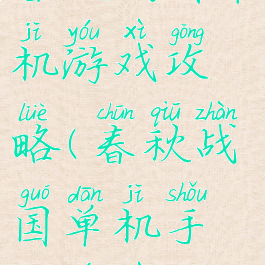 jī yóu xì gōng
机游戏攻
lüè chūn qiū zhàn
略(春秋战
guó dān jī shǒu
国单机手